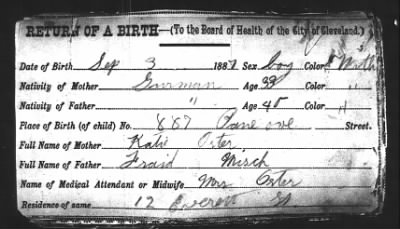 RETURN OF A BIRTH—(To the Board of Health of the City of Cleveland.)
Date of Birth Sep 3 188 Sex boy Color
Nativity of Mother German Age 33 Color "
Nativity of Father " Age 40 Color "
Place of Birth (of child) No. 887 Cane ave Street.
Full Name of Mother Katie Oster
Full Name of Father Fraid Misch
Name of Medical Attendant or Midwife Mrs Oster
Residence of same 12 Everett St